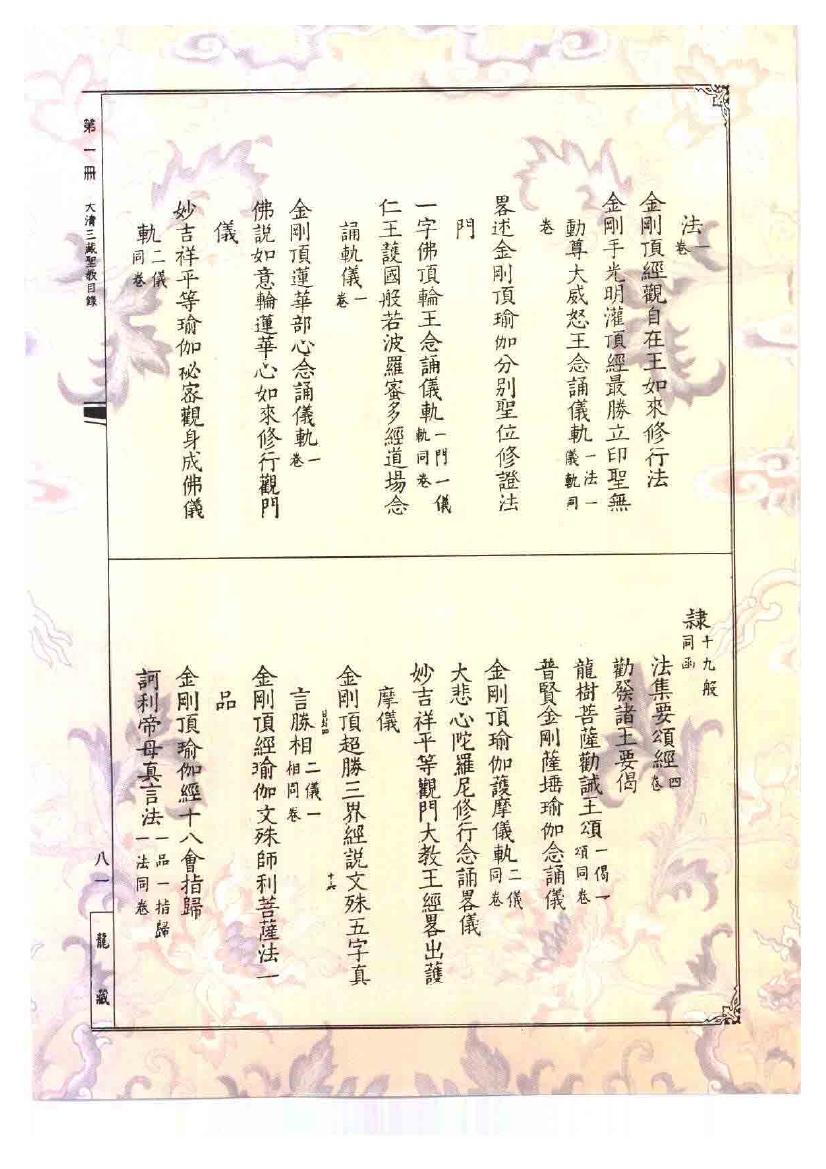 法一卷
金剛頂經觀自在王如來修行法
金剛手光明灌頂經最勝立印聖無
動尊大威怒王念誦儀軌一法一儀軌同
卷
畧述金剛頂瑜伽分別聖位修證法
門
一字佛頂輪王念誦儀軌一門一儀軌同卷
仁王護國般若波羅蜜多經道場念
誦軌儀一卷
金剛頂蓮華部心念誦儀軌一卷
佛説如意輪蓮華心如來修行觀門
儀
妙吉祥平等瑜伽祕密觀身成佛儀
軌二儀同卷
隷十九般同函
法集要頌經四卷
勸發諸王要偈
龍樹菩薩勸誡王頌一偈一頌同卷
普賢金剛薩埵瑜伽念誦儀
金剛頂瑜伽護摩儀軌二儀同卷
大悲心陀羅尼修行念誦畧儀
妙吉祥平等觀門大教王經畧出護
摩儀
金剛頂超勝三界經説文殊五字真
言勝相二儀一相同卷
金剛頂經瑜伽文殊師利菩薩法一
品
金剛頂瑜伽經十八會指歸
訶利帝母真言法一品一指歸一法同卷
第一冊 大清三藏聖教目錄
八一
龍藏